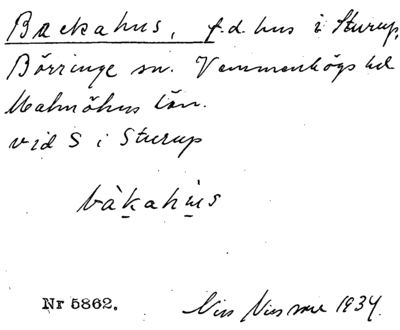 Backahus, f.d. hus i Sturup,
Börringe sn. Vemmenhögs hd
Malmöhus län.
vid S i Sturup
bàkahùs
Nr 5862. 1934